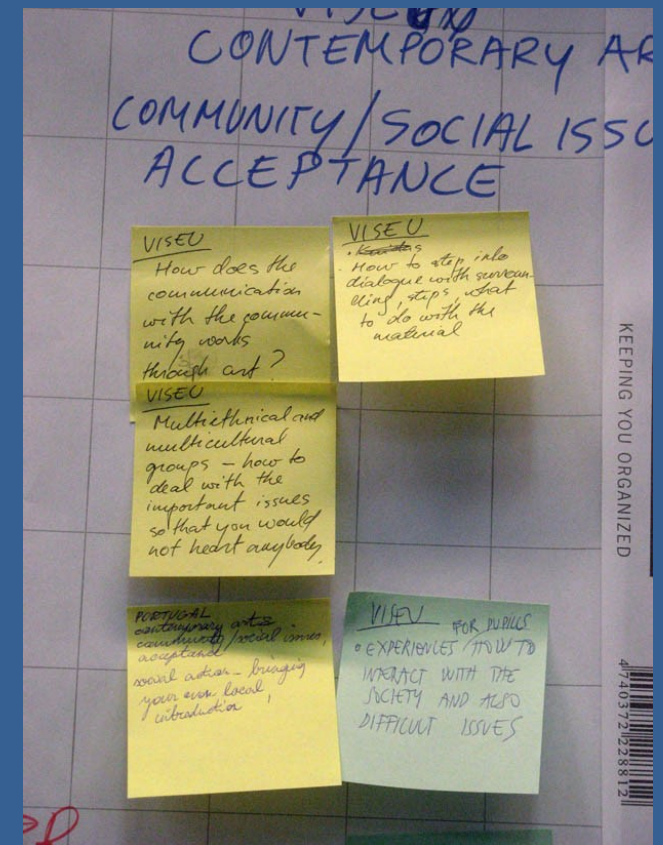 VISEU
CONTEMPORARY AR
COMMUNITY/SOCIAL ISSU
ACCEPTANCE
VISEU
How does the
communication
with the commu-
nity works
through art?
VISEU
• How to step into
dialogue with surroun-
ding, steps, what
to do with the
material
VISEU
Multiethnical and
multicultural
groups – how to
deal with the
important issues
so that you would
not heart anybody.
PORTUGAL
contemporary arts
community/social issues,
acceptance
social action – bringing
your own local
introduction,
VISEU FOR PUPILLS
• EXPERIENCES/HOW TO
INTERACT WITH THE
SOCIETY AND ALSO
DIFFICULT ISSUES
KEEPING YOU ORGANIZED
4740372228812